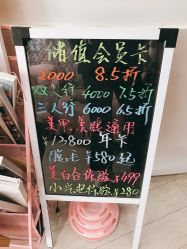 储值会员卡
2000 8.5折
双人行 4000 7.5折
三人行 6000 6.5折
美甲.美睫通用
¥13800 年卡
¥580起
美白 体验 ¥499
小气泡体验 ¥280